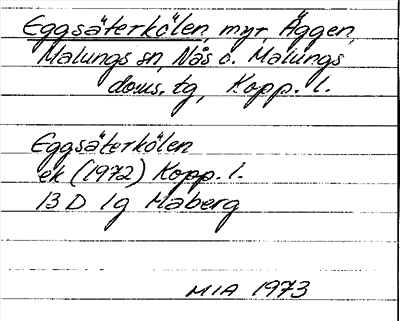 Eggsäterkölen, myr Äggen,
Malungs sn, Nås o. Malungs
doms. tg, Kopp. l.
Eggsäterkölen
ek (1972) Kopp. l.
13 D 1g Maberg
MIA 1973